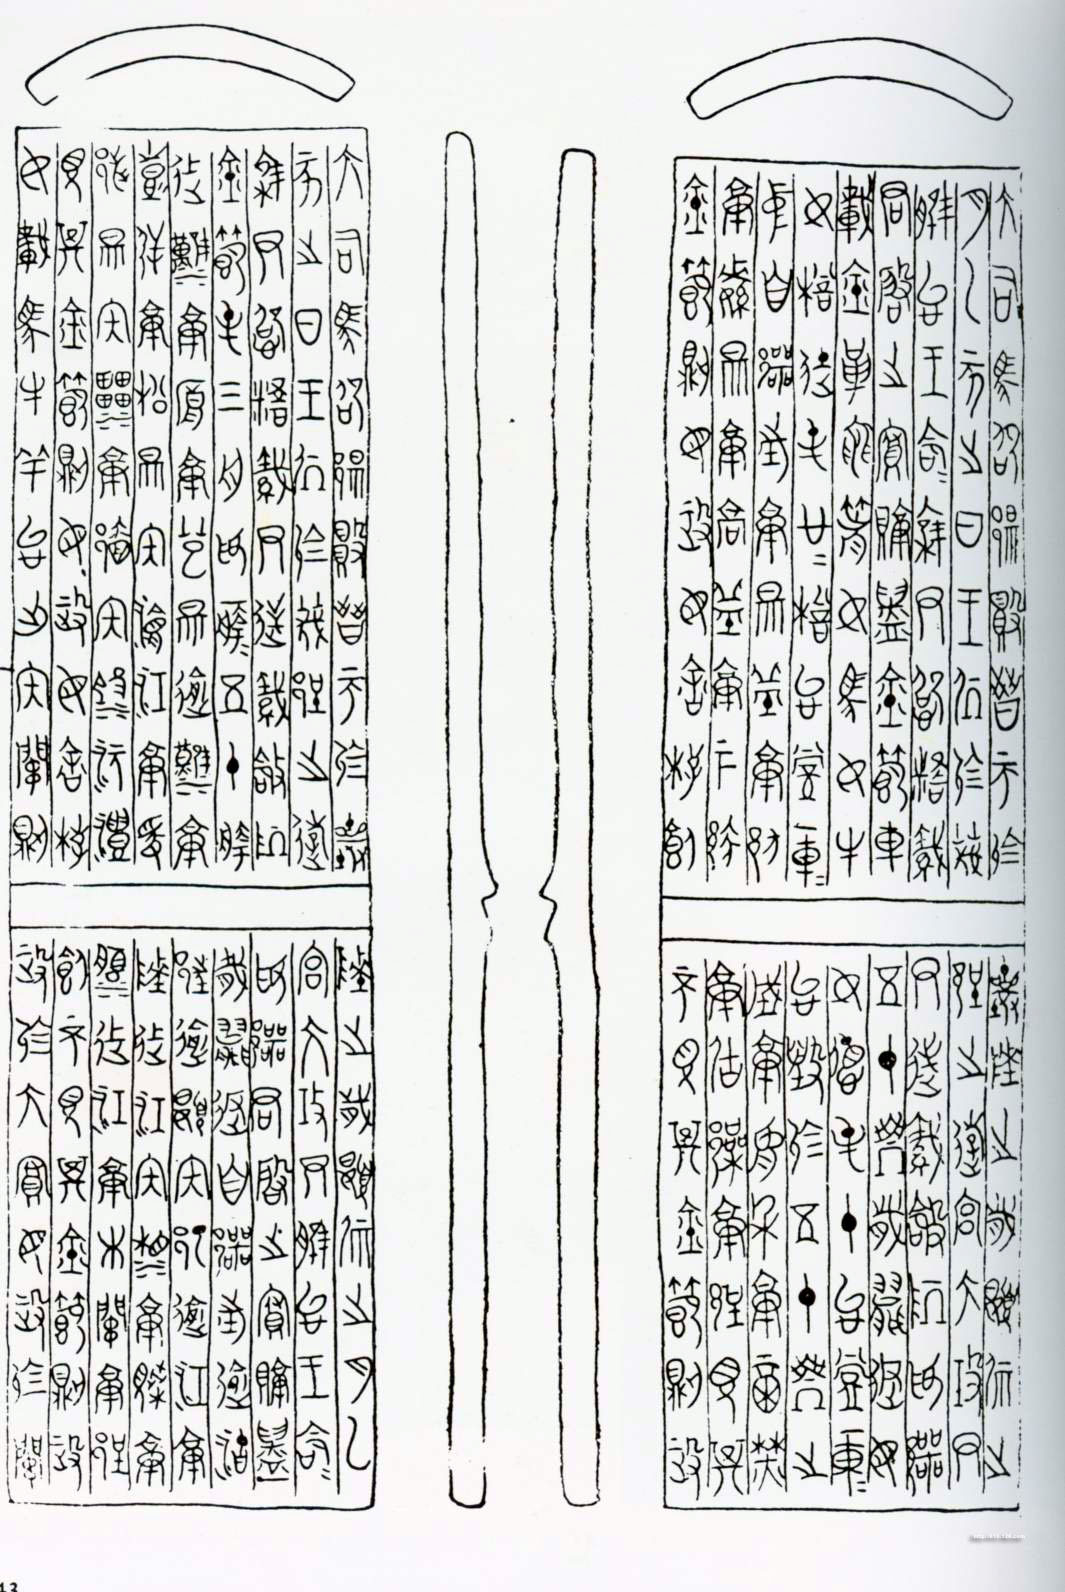 大司馬卲陽敗晉帀於
月乙亥之日王凥於茂
脽以王命=集尹𢘓糈裁
君啟之府賡鑄金節車
載金革黽箭女馬女牛
女檐徒屯廿=檐以堂一車
中自鄂往就陽丘就方
就繁陽就高丘就下蔡
金節則毋政毋舍桴飤
襄陵之歲夏之
郢之遊宮大攻尹
尹逆裁令阢為鄂
五十乘歲罷返毋
女特屯十以堂一車
以毀於五十乘之
城就象禾就畐焚
就居巢就郢見其
不見其金節則政
大司馬卲陽敗晉帀於襄
亥之日王凥於茂郢之遊
集尹𢘓糈裁尹逆裁令阢
金節屯三舟為一舿五十舿
上漢就就芑陽逾漢就
彭逆就松陽內瀘江就爰
洮陽內就郴內資沅澧
見其金節則毋政毋舍桴
女載馬牛羊以出內關則
陵之歲夏之月乙
宮大攻尹脽以王命=
為鄂君啟之府賡鑄
歲罷返自鄂往逾油
逾夏內逾江就
陵上江內湘就就
油上江就木關就郢
飤不見其金節則政
政於大府毋政於關